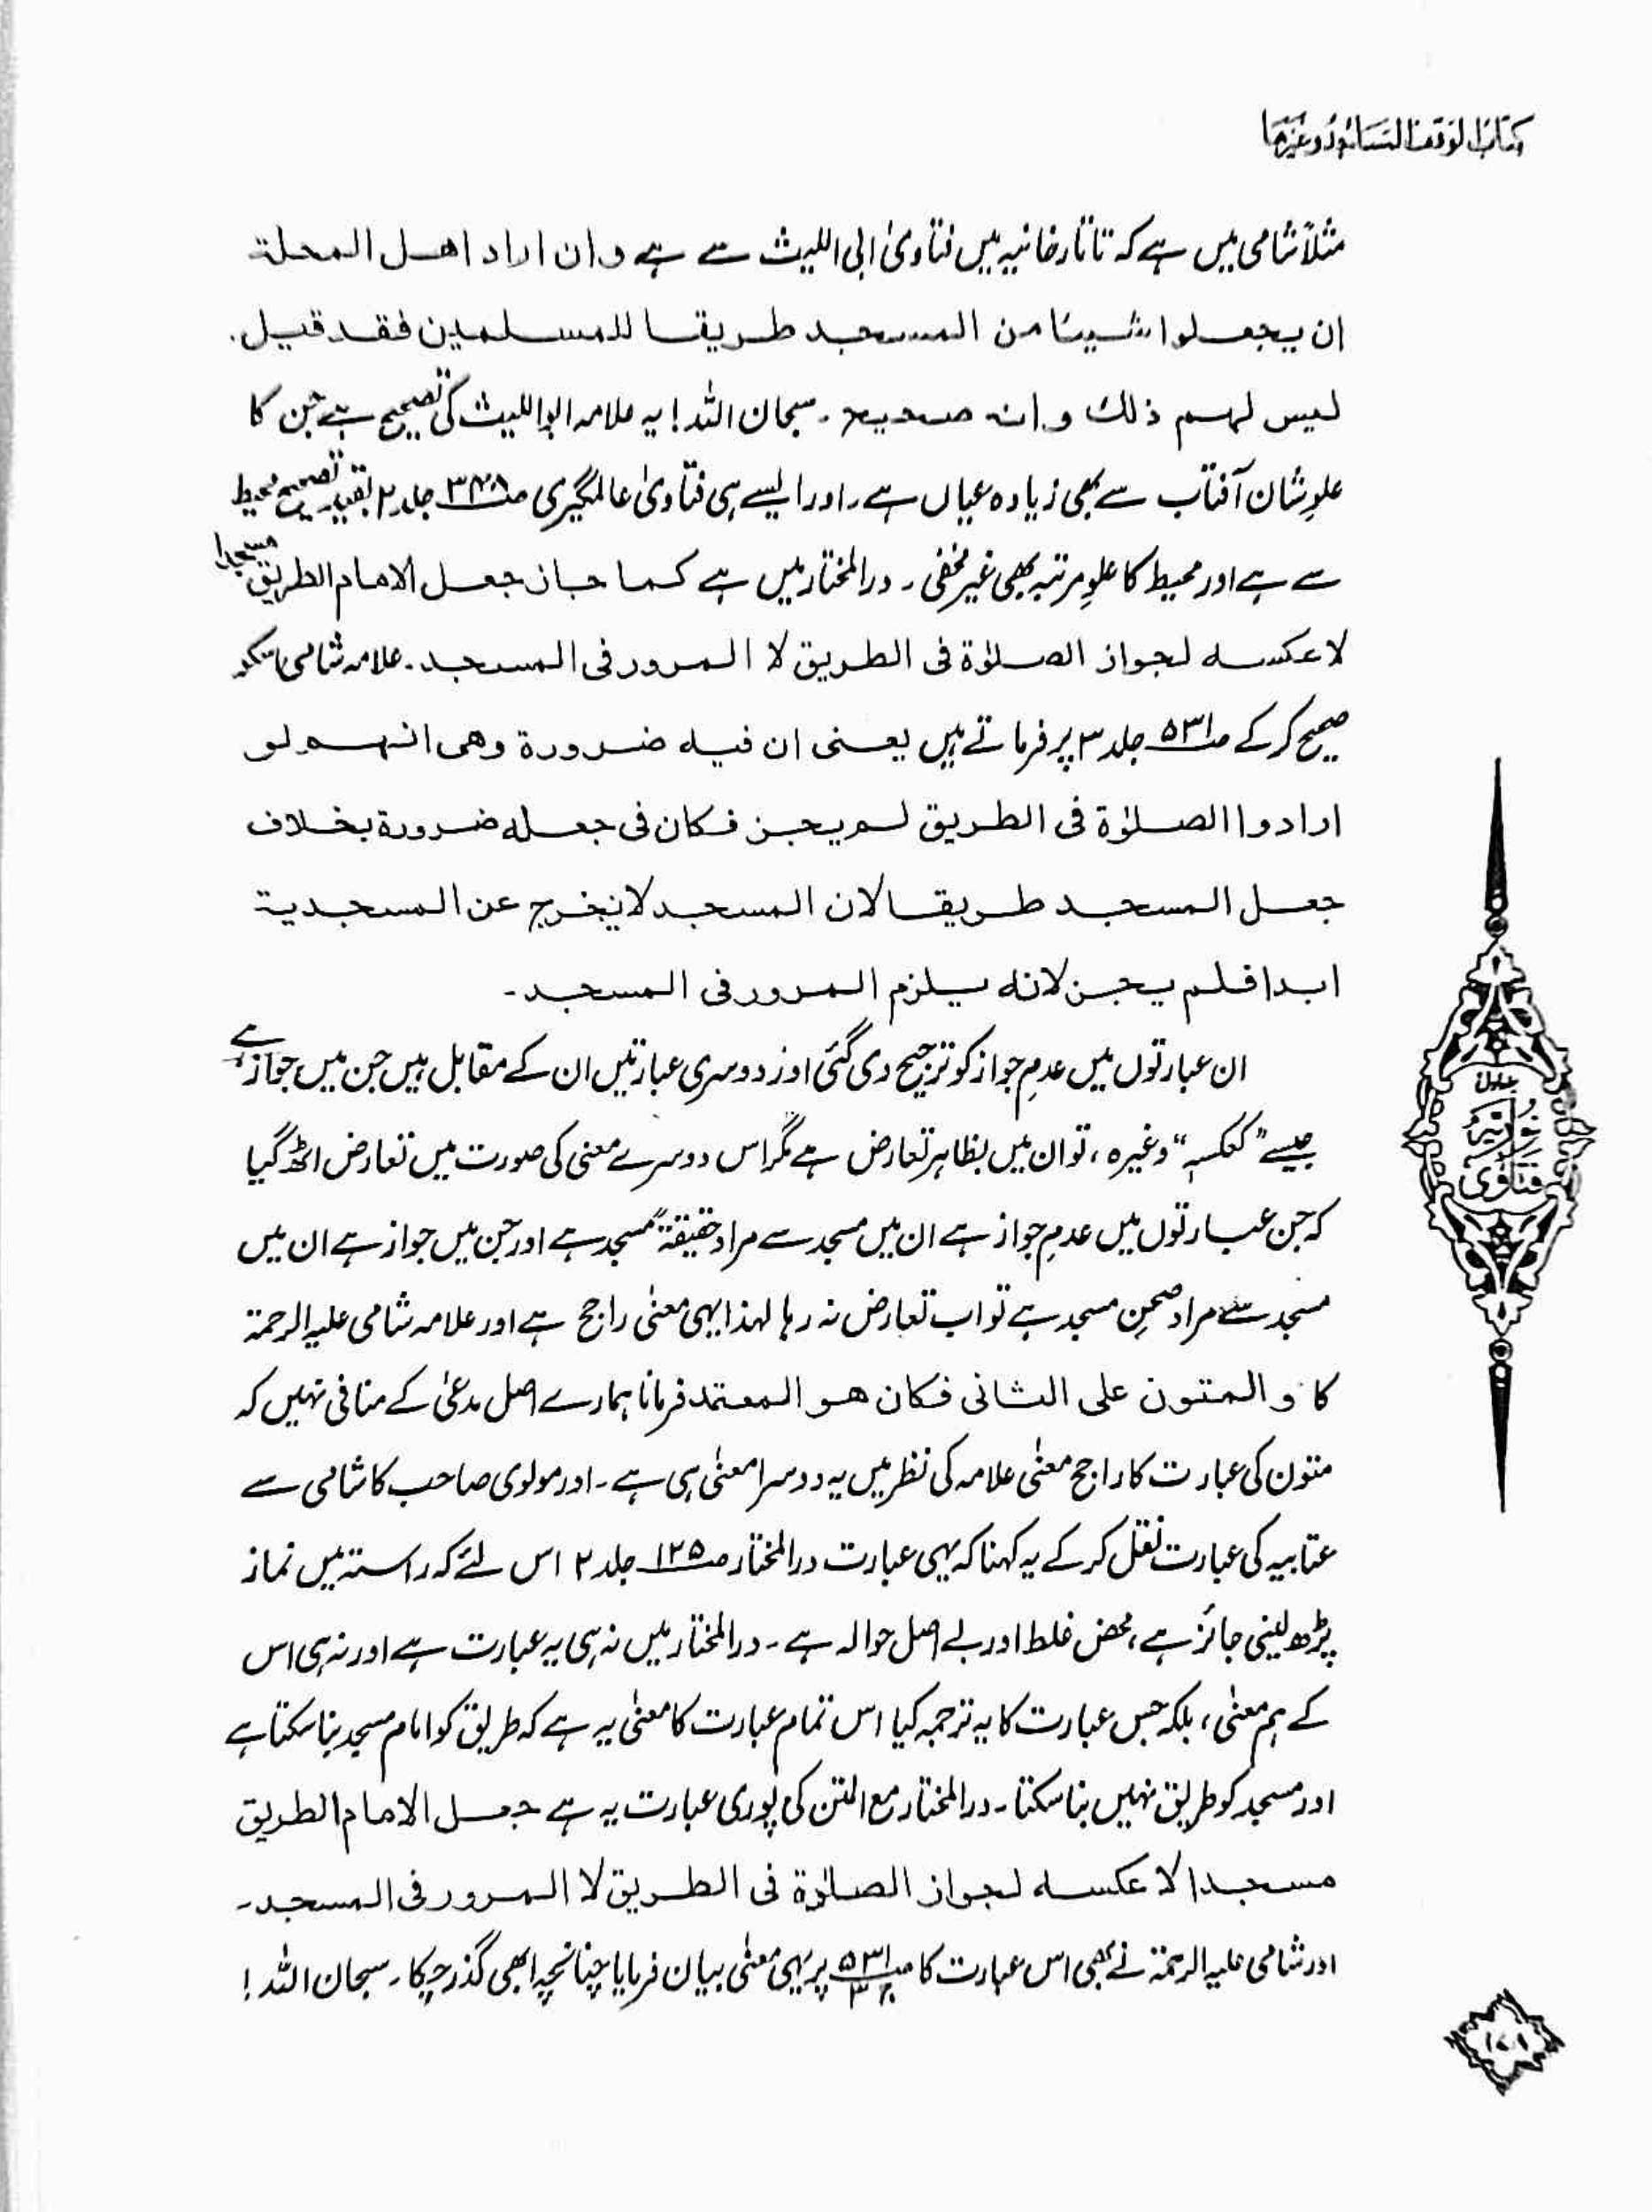 کتاب الوقف المساجد وغیرھا
مثلاً شامی میں ہے کہ تاتارخانیہ میں فتاویٰ ابی اللیث سے ہے وان اراد اھل المحلۃ
ان یجعلوا شیئا من المسجد طریقا للمسلمین فقد قیل.
لیس لھم ذلک وانہ صحیح۔ سبحان اللہ! یہ علامہ ابو اللیث کی تصحیح ہے جن کا
علوِ شان آفتاب سے بھی زیادہ عیاں ہے۔ اور ایسے ہی فتاویٰ عالمگیری جلد ۲ تصحیح محیط
سے ہے اور محیط کا علوِ مرتبہ بھی غیر مخفی۔ درالمختار میں ہے کما جاز جعل الامام الطریق مسجدا
لا عکسہ لجواز الصلوٰۃ فی الطریق لا المرور فی المسجد۔ علامہ شامی اسکو
صحیح کر کے صـ۵۳۱ جلد ۳ پر فرماتے ہیں یعنی ان فیہ ضرورۃ وھی انہم لو
ارادوا الصلوٰۃ فی الطریق لم یجز فکان فی جعلہ ضرورۃ بخلاف
جعل المسجد طریقا لان المسجد لا یخرج عن المسجدیۃ
ابدا فلم یجز لانہ یلزم المرور فی المسجد۔
ان عبارتوں میں عدمِ جواز کو ترجیح دی گئی اور دوسری عبارتیں ان کے مقابل ہیں جن میں جواز ہے
جیسے ”کعکسہ“ وغیرہ، تو ان میں بظاہر تعارض ہے مگر اس دوسرے معنی کی صورت میں تعارض اٹھ گیا
کہ جن عبارتوں میں عدمِ جواز ہے ان میں مسجد سے مراد حقیقۃً مسجد ہے اور جن میں جواز ہے ان میں
مسجد سے مراد صحنِ مسجد ہے تو اب تعارض نہ رہا لہذا یہی معنیٰ راجح ہے اور علامہ شامی علیہ الرحمۃ
کا و المتون علی الثانی فکان ھو المعتمد فرمانا ہمارے اصل مدعیٰ کے منافی نہیں کہ
متون کی عبارت کا راجح معنیٰ علامہ کی نظر میں یہ دوسرا معنیٰ ہی ہے۔ اور مولوی صاحب کا شامی سے
عتابیہ کی عبارت نقل کر کے یہ کہنا کہ یہی عبارت درالمختار صـ۱۲۵ جلد ۲ اس لئے کہ راستہ میں نماز
پڑھ لینی جائز ہے، محض غلط اور بے اصل حوالہ ہے۔ درالمختار میں نہ ہی یہ عبارت ہے اور نہ ہی اس
کے ہم معنیٰ، بلکہ جس عبارت کا یہ ترجمہ کیا اس تمام عبارت کا معنیٰ یہ ہے کہ طریق کو امام مسجد بنا سکتا ہے
اور مسجد کو طریق نہیں بنا سکتا۔ درالمختار مع المتن کی پوری عبارت یہ ہے جعل الامام الطریق
مسجدا لا عکسہ لجواز الصلوٰۃ فی الطریق لا المرور فی المسجد۔
اور شامی علیہ الرحمۃ نے بھی اس عبارت کا صـ۵۳۱ ج۳ پر یہی معنیٰ بیان فرمایا چنانچہ ابھی گذر چکا۔ سبحان اللہ!
نوریہ
فتاویٰ